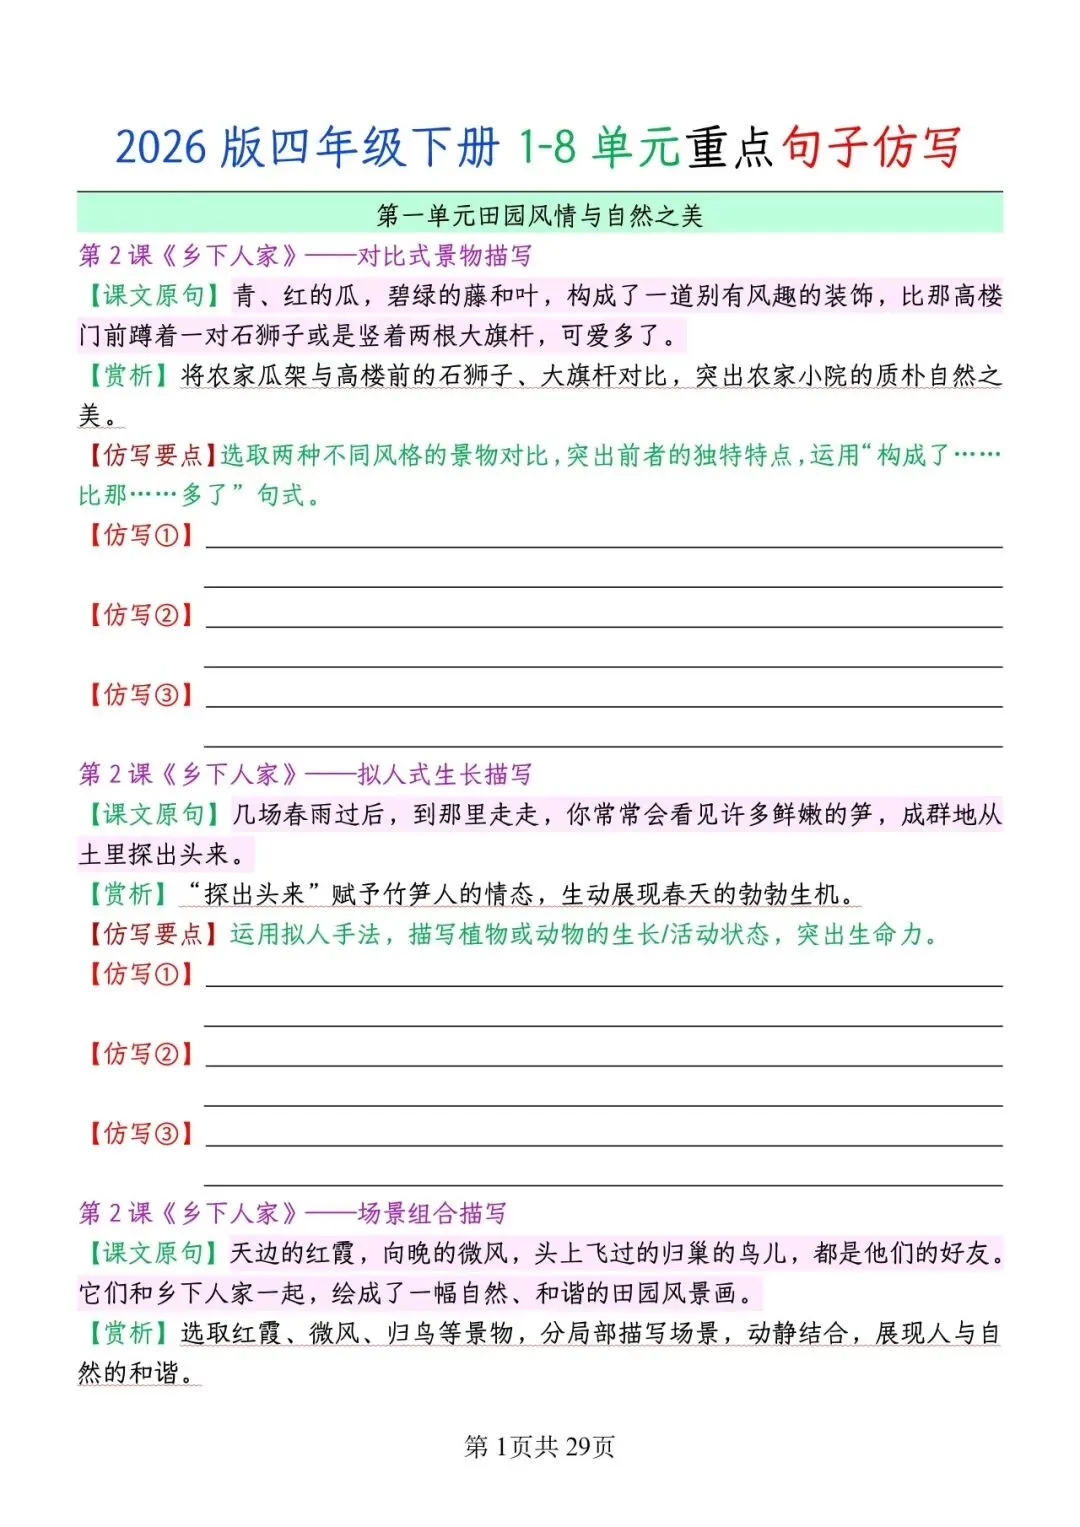 2026 版四年级下册 1-8 单元重点句子仿写
第一单元田园风情与自然之美
第 2 课《乡下人家》——对比式景物描写
【课文原句】青、红的瓜，碧绿的藤和叶，构成了一道别有风趣的装饰，比那高楼
门前蹲着一对石狮子或是竖着两根大旗杆，可爱多了。
【赏析】将农家瓜架与高楼前的石狮子、大旗杆对比，突出农家小院的质朴自然之
美。
【仿写要点】选取两种不同风格的景物对比，突出前者的独特特点，运用“构成了……
比那……多了”句式。
【仿写①】
【仿写②】
【仿写③】
第 2 课《乡下人家》——拟人式生长描写
【课文原句】几场春雨过后，到那里走走，你常常会看见许多鲜嫩的笋，成群地从
土里探出头来。
【赏析】“探出头来”赋予竹笋人的情态，生动展现春天的勃勃生机。
【仿写要点】运用拟人手法，描写植物或动物的生长/活动状态，突出生命力。
【仿写①】
【仿写②】
【仿写③】
第 2 课《乡下人家》——场景组合描写
【课文原句】天边的红霞，向晚的微风，头上飞过的归巢的鸟儿，都是他们的好友。
它们和乡下人家一起，绘成了一幅自然、和谐的田园风景画。
【赏析】选取红霞、微风、归鸟等景物，分局部描写场景，动静结合，展现人与自
然的和谐。
第 1页共 29页